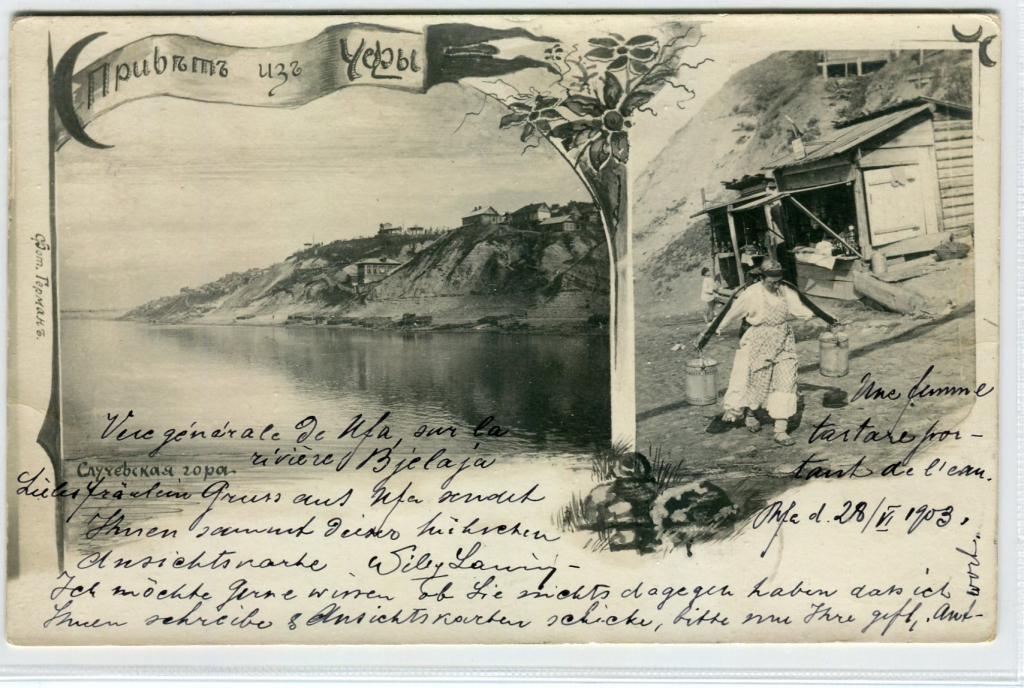 Привѣтъ изъ Уфы
Фот. Германъ.
Случевская гора.
Vue générale de Ufa, sur la
rivière Bjelaja
Une femme
tartare por-
tant de l'eau.
Ufa d. 28/VI 1903.
Liebes fräulein Gruss aus Ufa sendet
Ihnen sammt dieser hübschen
Ansichtskarte
Ich möchte gerne wissen ob Sie nichts dagegen haben dass ich
Ihnen schreibe & Ansichtskarten schicke, bitte um Ihre gefl. Ant-
wort.